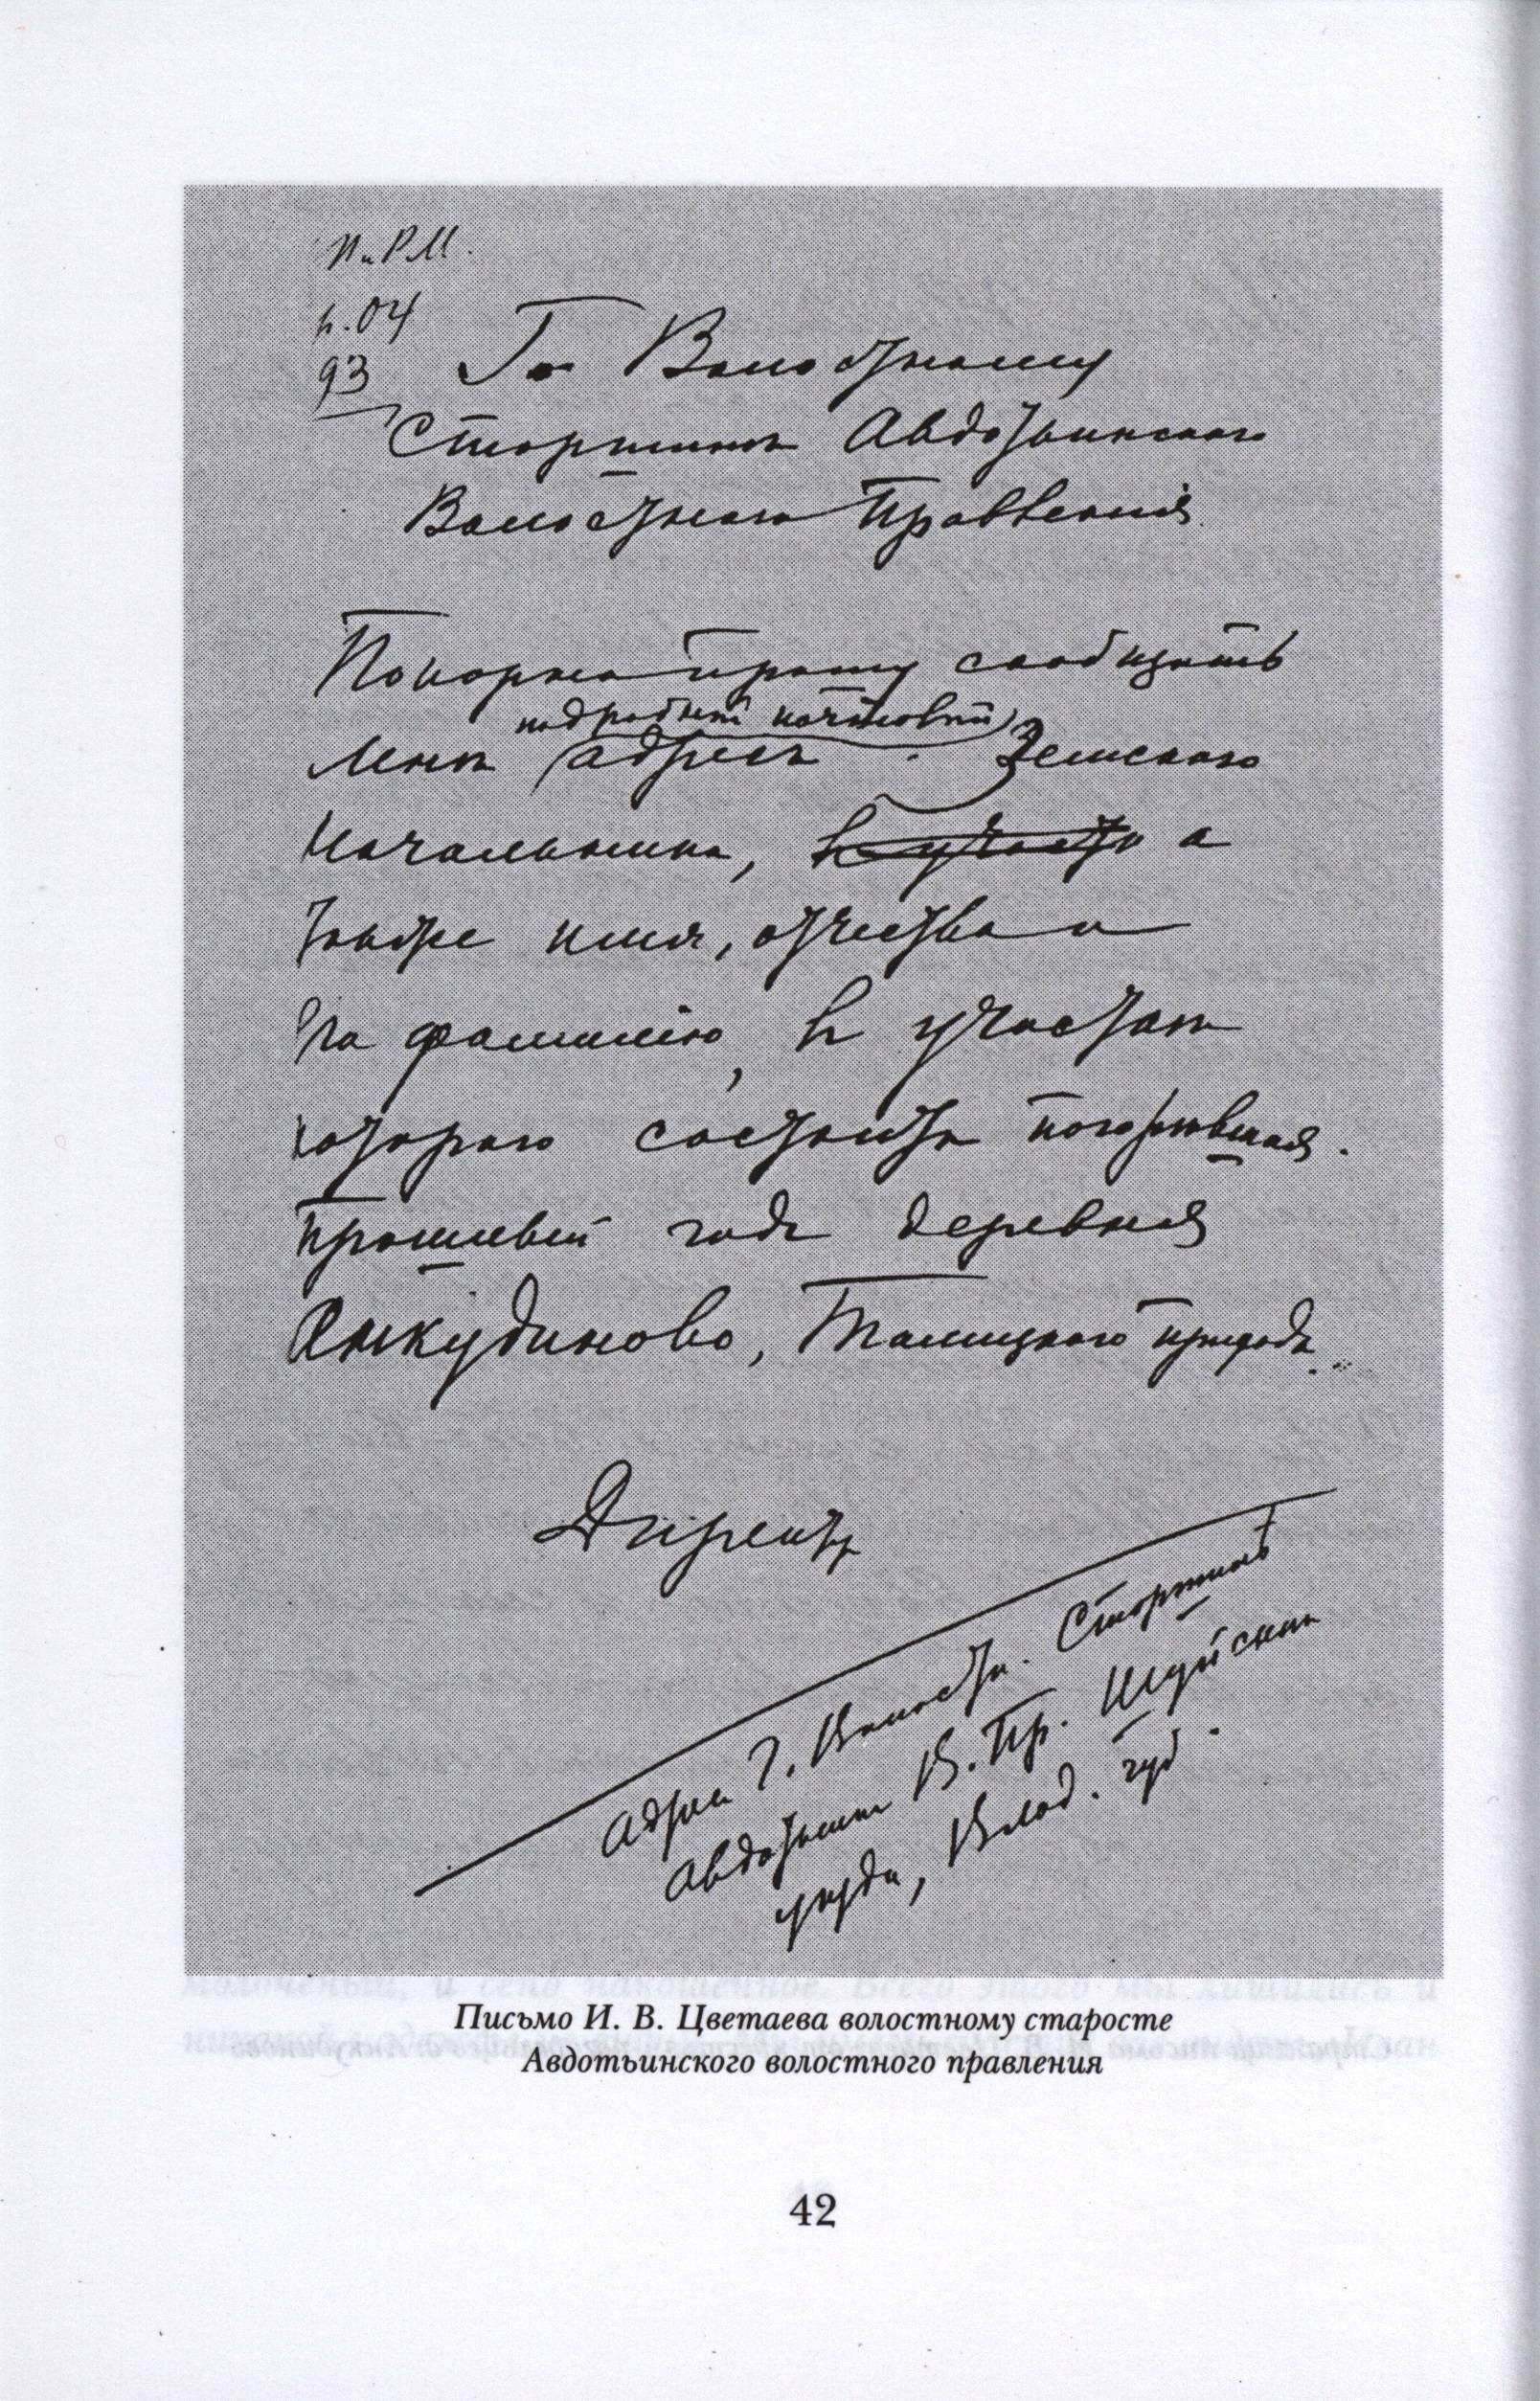 П. и Р. М.
н. 04
93
Го Волостному
Старшинѣ Авдотьинскаго
Волостного Правленія
Покорно прошу сообщить
подробный почтовый
мнѣ адресъ Земского
Начальника, а
также имя, отчество и
его фамилію, въ участкѣ
котораго состоитъ погорѣвшая
прошлый годъ деревня
Анкудиново, Талицкаго прихода
Директ
Адрес Г. Волостн. Старшинѣ
Авдотьин В. Пр. Шуйскаго
уѣзда, Влад. губ.
Письмо И. В. Цветаева волостному старосте
Авдотьинского волостного правления
42